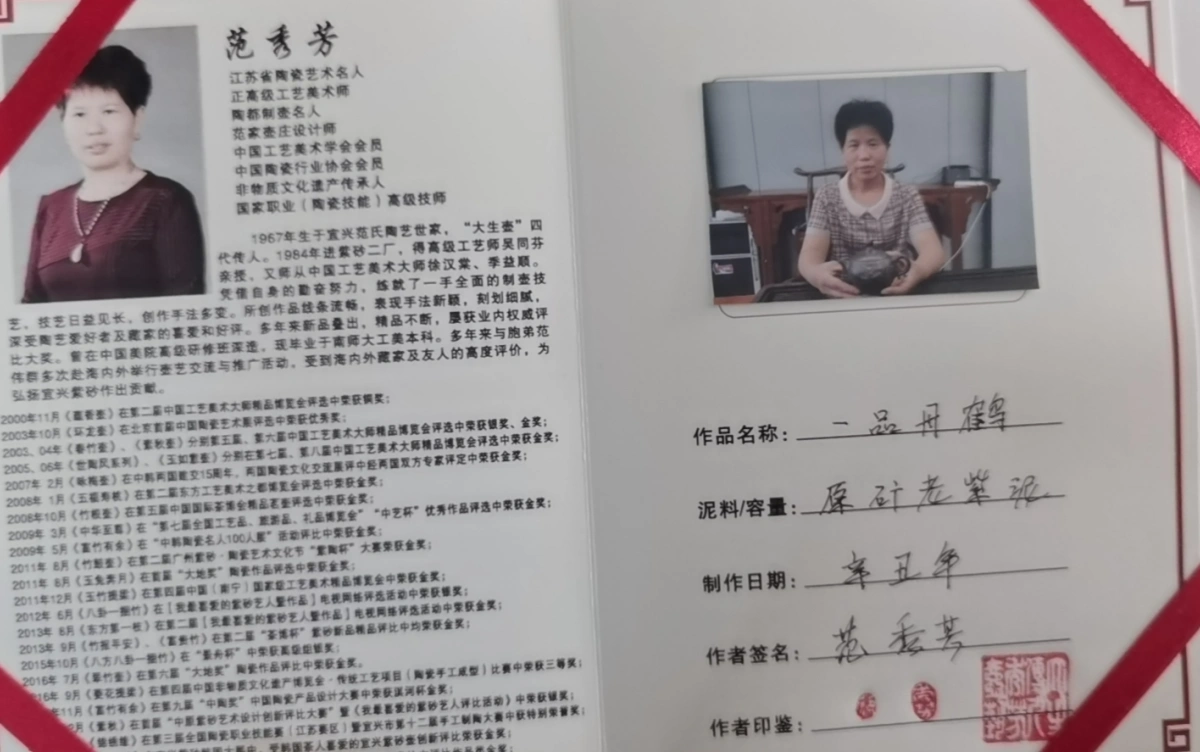 范秀芳
江苏省陶瓷艺术名人
正高级工艺美术师
陶都制壶名人
范家壶庄设计师
中国工艺美术学会会员
中国陶瓷行业协会会员
非物质文化遗产传承人
国家职业（陶瓷技能）高级技师
1967年生于宜兴范氏陶艺世家，“大生壶”四
代传人。1984年进紫砂二厂，得高级工艺师吴同芬
亲授，又师从中国工艺美术大师徐汉棠、季益顺。
凭借自身的勤奋努力，练就了一手全面的制壶技
艺，技艺日益见长，创作手法多变。所创作品线条流畅，表现手法新颖，刻划细腻，
深受陶艺爱好者及藏家的喜爱和好评。多年来新品叠出，精品不断，屡获业内权威评
比大奖。曾在中国美院高级研修班深造，现毕业于南师大工美本科。多年来与胞弟范
伟群多次赴海内外举行壶艺交流与推广活动，受到海内外藏家及友人的高度评价，为
弘扬宜兴紫砂作出贡献。
2000年11月《喜春壶》在第二届中国工艺美术大师精品博览会评选中荣获铜奖；
2003年10月《环龙壶》在北京首届中国陶瓷艺术展评选中荣获优秀奖；
2003、04年《春竹壶》、《紫秋壶》分别第五届、第六届中国工艺美术大师精品博览会评选中荣获银奖、金奖；
2005、06年《世陶风系列》、《玉如意壶》分别在第七届、第八届中国工艺美术大师精品博览会评选中荣获金奖；
2007年 2月《咏梅壶》在中韩两国建交15周年，两国陶瓷文化交流展评中经两国双方专家评定中荣获金奖；
2008年 1月《五福寿桃》在第二届东方工艺美术之都博览会评选中荣获金奖；
2008年10月《竹根壶》在第五届中国国际茶博会精品茗壶评选中荣获金奖；
2009年 3月《中华至尊》在“第七届全国工艺品、旅游品、礼品博览会”“中艺杯”优秀作品评选中荣获金奖；
2009年 5月《富竹有余》在“中韩陶瓷名人100人展”活动评比中荣获金奖；
2011年 8月《竹趣壶》在第二届广州紫砂·陶瓷艺术文化节“紫陶杯”大赛荣获金奖；
2011年 8月《玉兔奔月》在首届“大地奖”陶瓷作品评选中荣获金奖；
2011年12月《玉竹提梁》在第四届中国（南宁）国家级工艺美术精品博览会中荣获金奖；
2012年 6月《八卦一捆竹》在[我最喜爱的紫砂艺人暨作品]电视网络评选活动中荣获银奖；
2013年 8月《东方第一桩》在第二届[我最喜爱的紫砂艺人暨作品]电视网络评选活动中荣获金奖；
2013年 9月《竹报平安》、《富贵竹》在第二届“茶博杯”紫砂新品精品评比中均荣获金奖；
2015年10月《八方八卦一捆竹》在“景舟杯”中荣获高级组银奖；
2016年 7月《翠竹壶》在第六届“大地奖”陶瓷作品评比中荣获金奖。
9月《葵花提梁》在第四届中国非物质文化遗产博览会·传统工艺项目（陶瓷手工成型）比赛中荣获三等奖；
11月《富竹有余》在第九届“中陶奖”中国陶瓷产品设计大赛中荣获滨河杯金奖；
作品名称：一品丹鹤
泥料/容量：原矿老紫泥
制作日期：辛丑年
作者签名：范秀芳
作者印鉴：